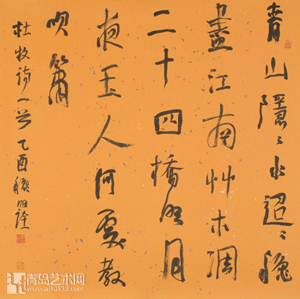 青山隱〻水迢〻穐
盡江南艸木凋
二十四橋明月
夜玉人何處教
吹簫
杜牧詩一首 乙酉
青岛艺术网